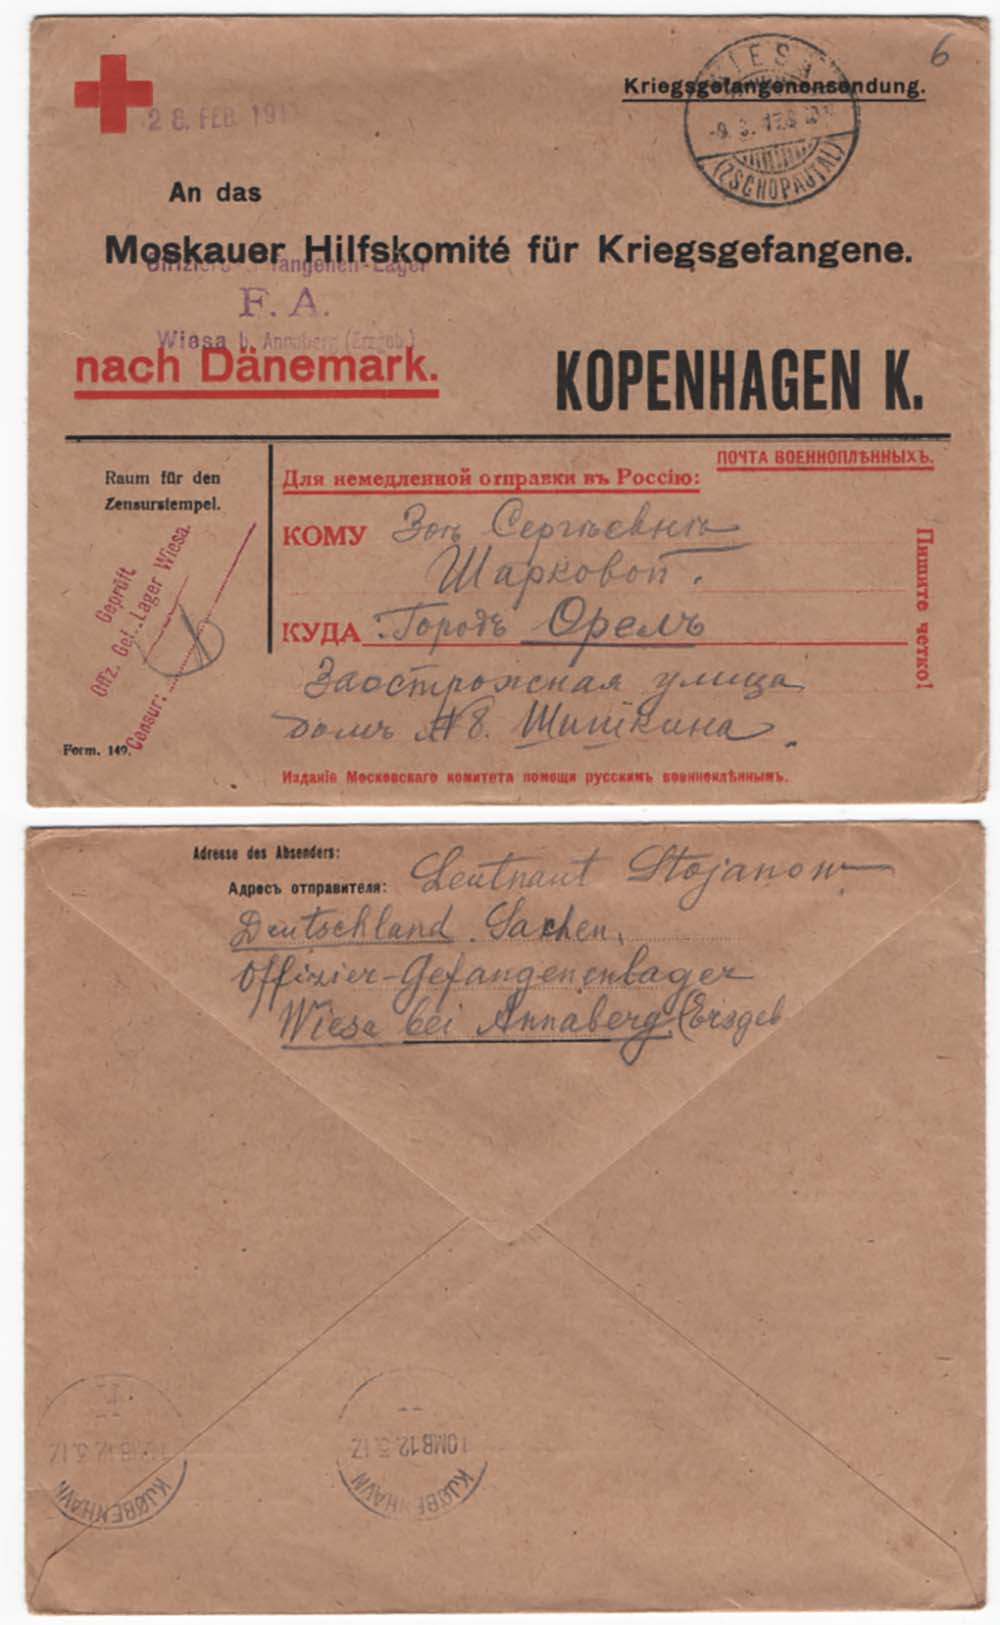 6
Kriegsgefangenensendung.
WIESA
-9. 3. 17.
(ZSCHOPAUTAL)
28. FEB. 191
An das
Moskauer Hilfskomité für Kriegsgefangene.
Offiziers-Gefangenen-Lager
F. A.
Wiesa b. Annaberg (Erzgeb.)
nach Dänemark.
KOPENHAGEN K.
ПОЧТА ВОЕННОПЛѢННЫХЪ.
Raum für den
Zensurstempel.
Geprüft
Offz. Gef.-Lager Wiesa.
Censur:
Form. 149.
Для немедленной отправки въ Россію:
КОМУ Зоѣ Сергѣевнѣ
Шарковой.
КУДА Городъ Орелъ
Заострожная улица
домъ №8. Шишкина
Пишите четко!
Изданіе Московскаго комитета помощи русскимъ военноплѣннымъ.
Adresse des Absenders:
Адресъ отправителя: Leutnant Stojanow
Deutschland. Sachen,
Offizier-Gefangenenlager
Wiesa bei Annaberg (Erzgeb
KJØBENHAVN
12.3.17
KJØBENHAVN
1 OMB 12.3.17